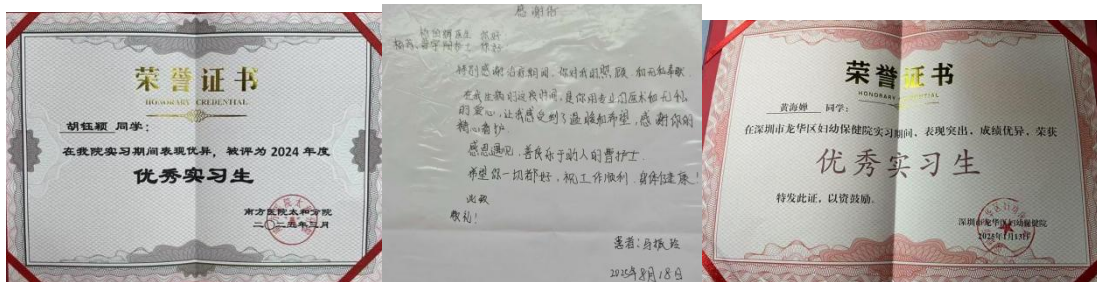 荣誉证书
HONORARY CREDENTIAL
胡钰颖 同学：
在我院实习期间表现优异，被评为 2024 年度
优秀实习生
南方医院太和分院
二〇二五年三月
感谢信
你好
你好
特别感谢治疗期间，你对我的照顾，和无私奉献
在我生病的这段时间，是你用专业的医术和无私
的爱心，让我感受到了温暖和希望，感谢你的
精心看护
感恩遇见，善良乐于助人的曹护士
希望你一切都好，祝工作顺利，身体健康！
此致
敬礼！
患者：
2025年8月18日
荣誉证书
HONORARY CREDENTIAL
黄海婵 同学：
在深圳市龙华区妇幼保健院实习期间，表现突出，成绩优异，荣获
优秀实习生
特发此证，以资鼓励。
深圳市龙华区妇幼保健院